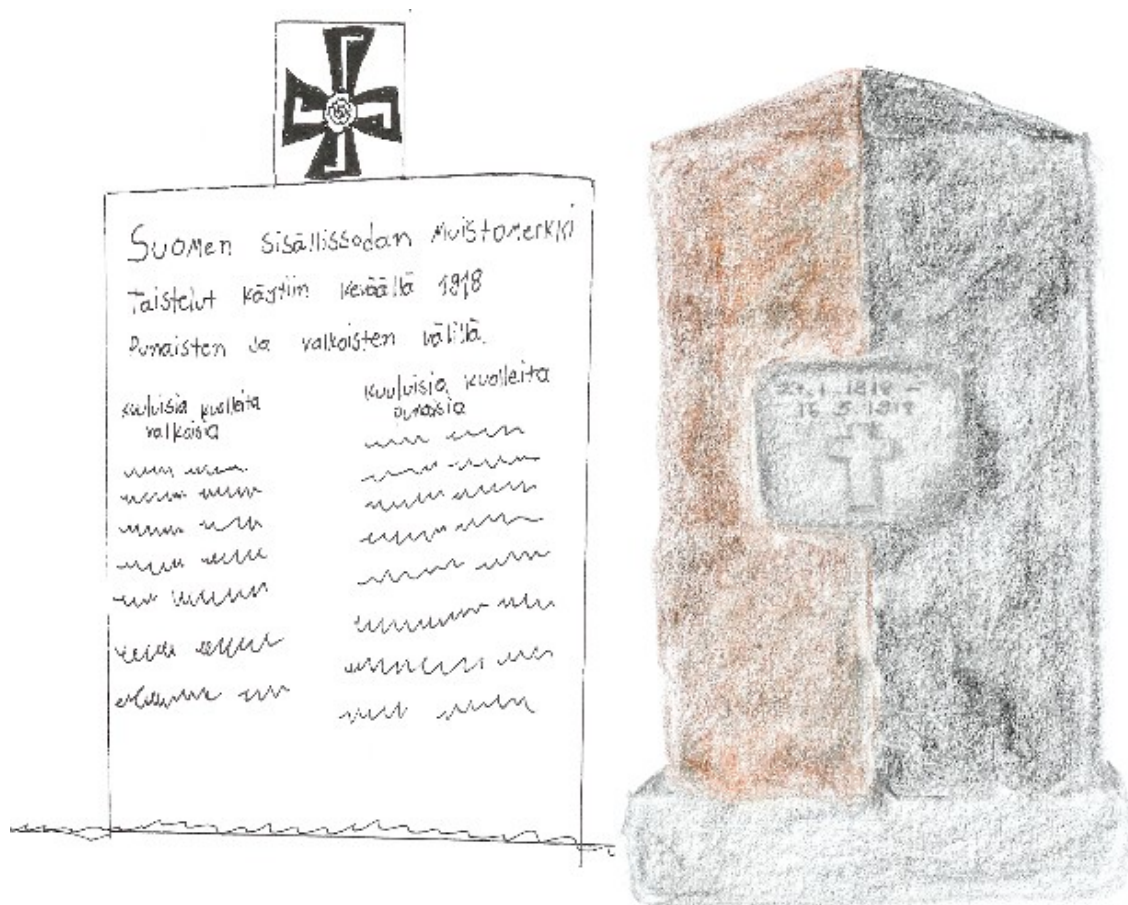 Suomen sisällissodan Muistomerkki
Taistelut käytiin keväällä 1918
Punaisten ja valkoisten välillä.
kuuluisia kuolleita
valkoisia
kuuluisia kuolleita
punaisia
27.1.1918 –
15.5.1918